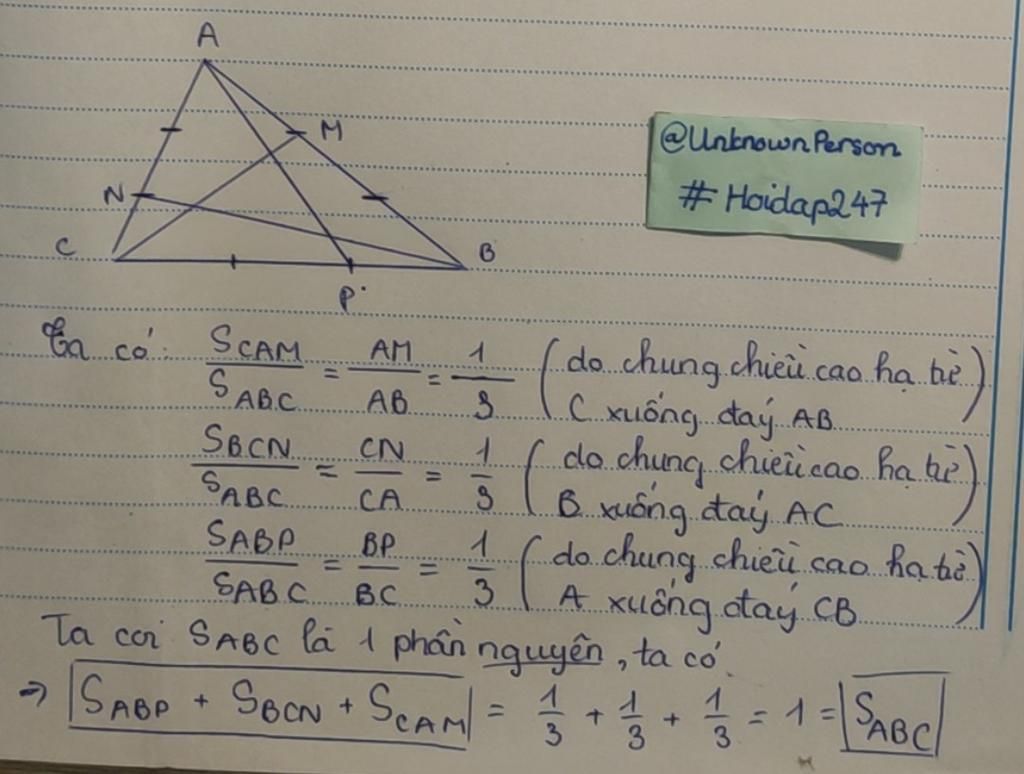 A
M
N
C
B
P
@UnknownPerson
#Hoidap247
Ta có: SCAM/SABC = AM/AB = 1/3 (do chung chiều cao hạ từ C xuống đáy AB)
SBCN/SABC = CN/CA = 1/3 (do chung chiều cao hạ từ B xuống đáy AC)
SABP/SABC = BP/BC = 1/3 (do chung chiều cao hạ từ A xuống đáy CB)
Ta coi SABC là 1 phần nguyên, ta có
⇒ SABP + SBCN + SCAM = 1/3 + 1/3 + 1/3 = 1 = SABC